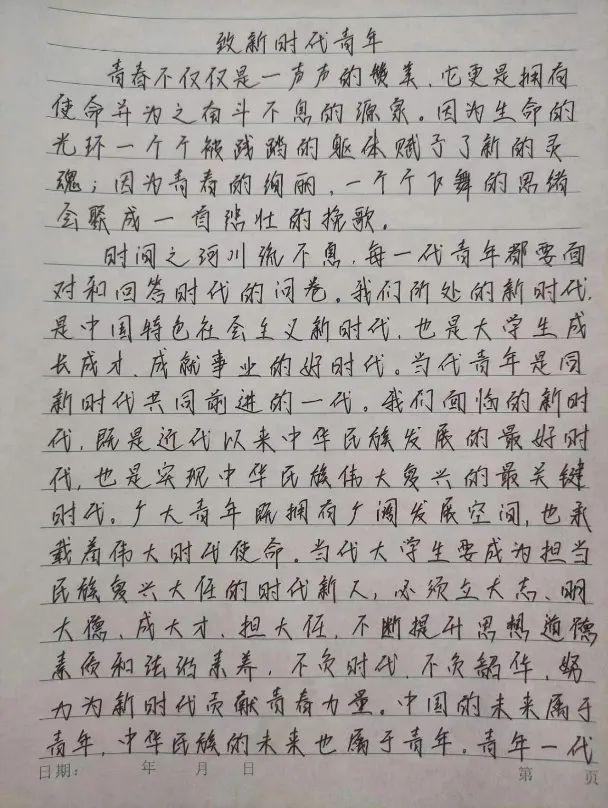 致新时代青年
青春不仅仅是一声声的赞美,它更是拥有
使命并为之奋斗不息的源泉。因为生命的
光环一个个被践踏的躯体赋予了新的灵
魂;因为青春的绚丽,一个个飞舞的思绪
会聚成一首悲壮的挽歌。
时间之河川流不息,每一代青年都要面
对和回答时代的问卷。我们所处的新时代,
是中国特色社会主义新时代,也是大学生成
长成才、成就事业的好时代。当代青年是同
新时代共同前进的一代。我们面临的新时
代,既是近代以来中华民族发展的最好时
代,也是实现中华民族伟大复兴的最关键
时代。广大青年既拥有广阔发展空间,也承
载着伟大时代使命。当代大学生要成为担当
民族复兴大任的时代新人,必须立大志、明
大德、成大才、担大任,不断提升思想道德
素质和法治素养,不负时代,不负韶华,努
力为新时代贡献青春力量。中国的未来属于
青年,中华民族的未来也属于青年。青年一代
日期: 年 月 日 第 页